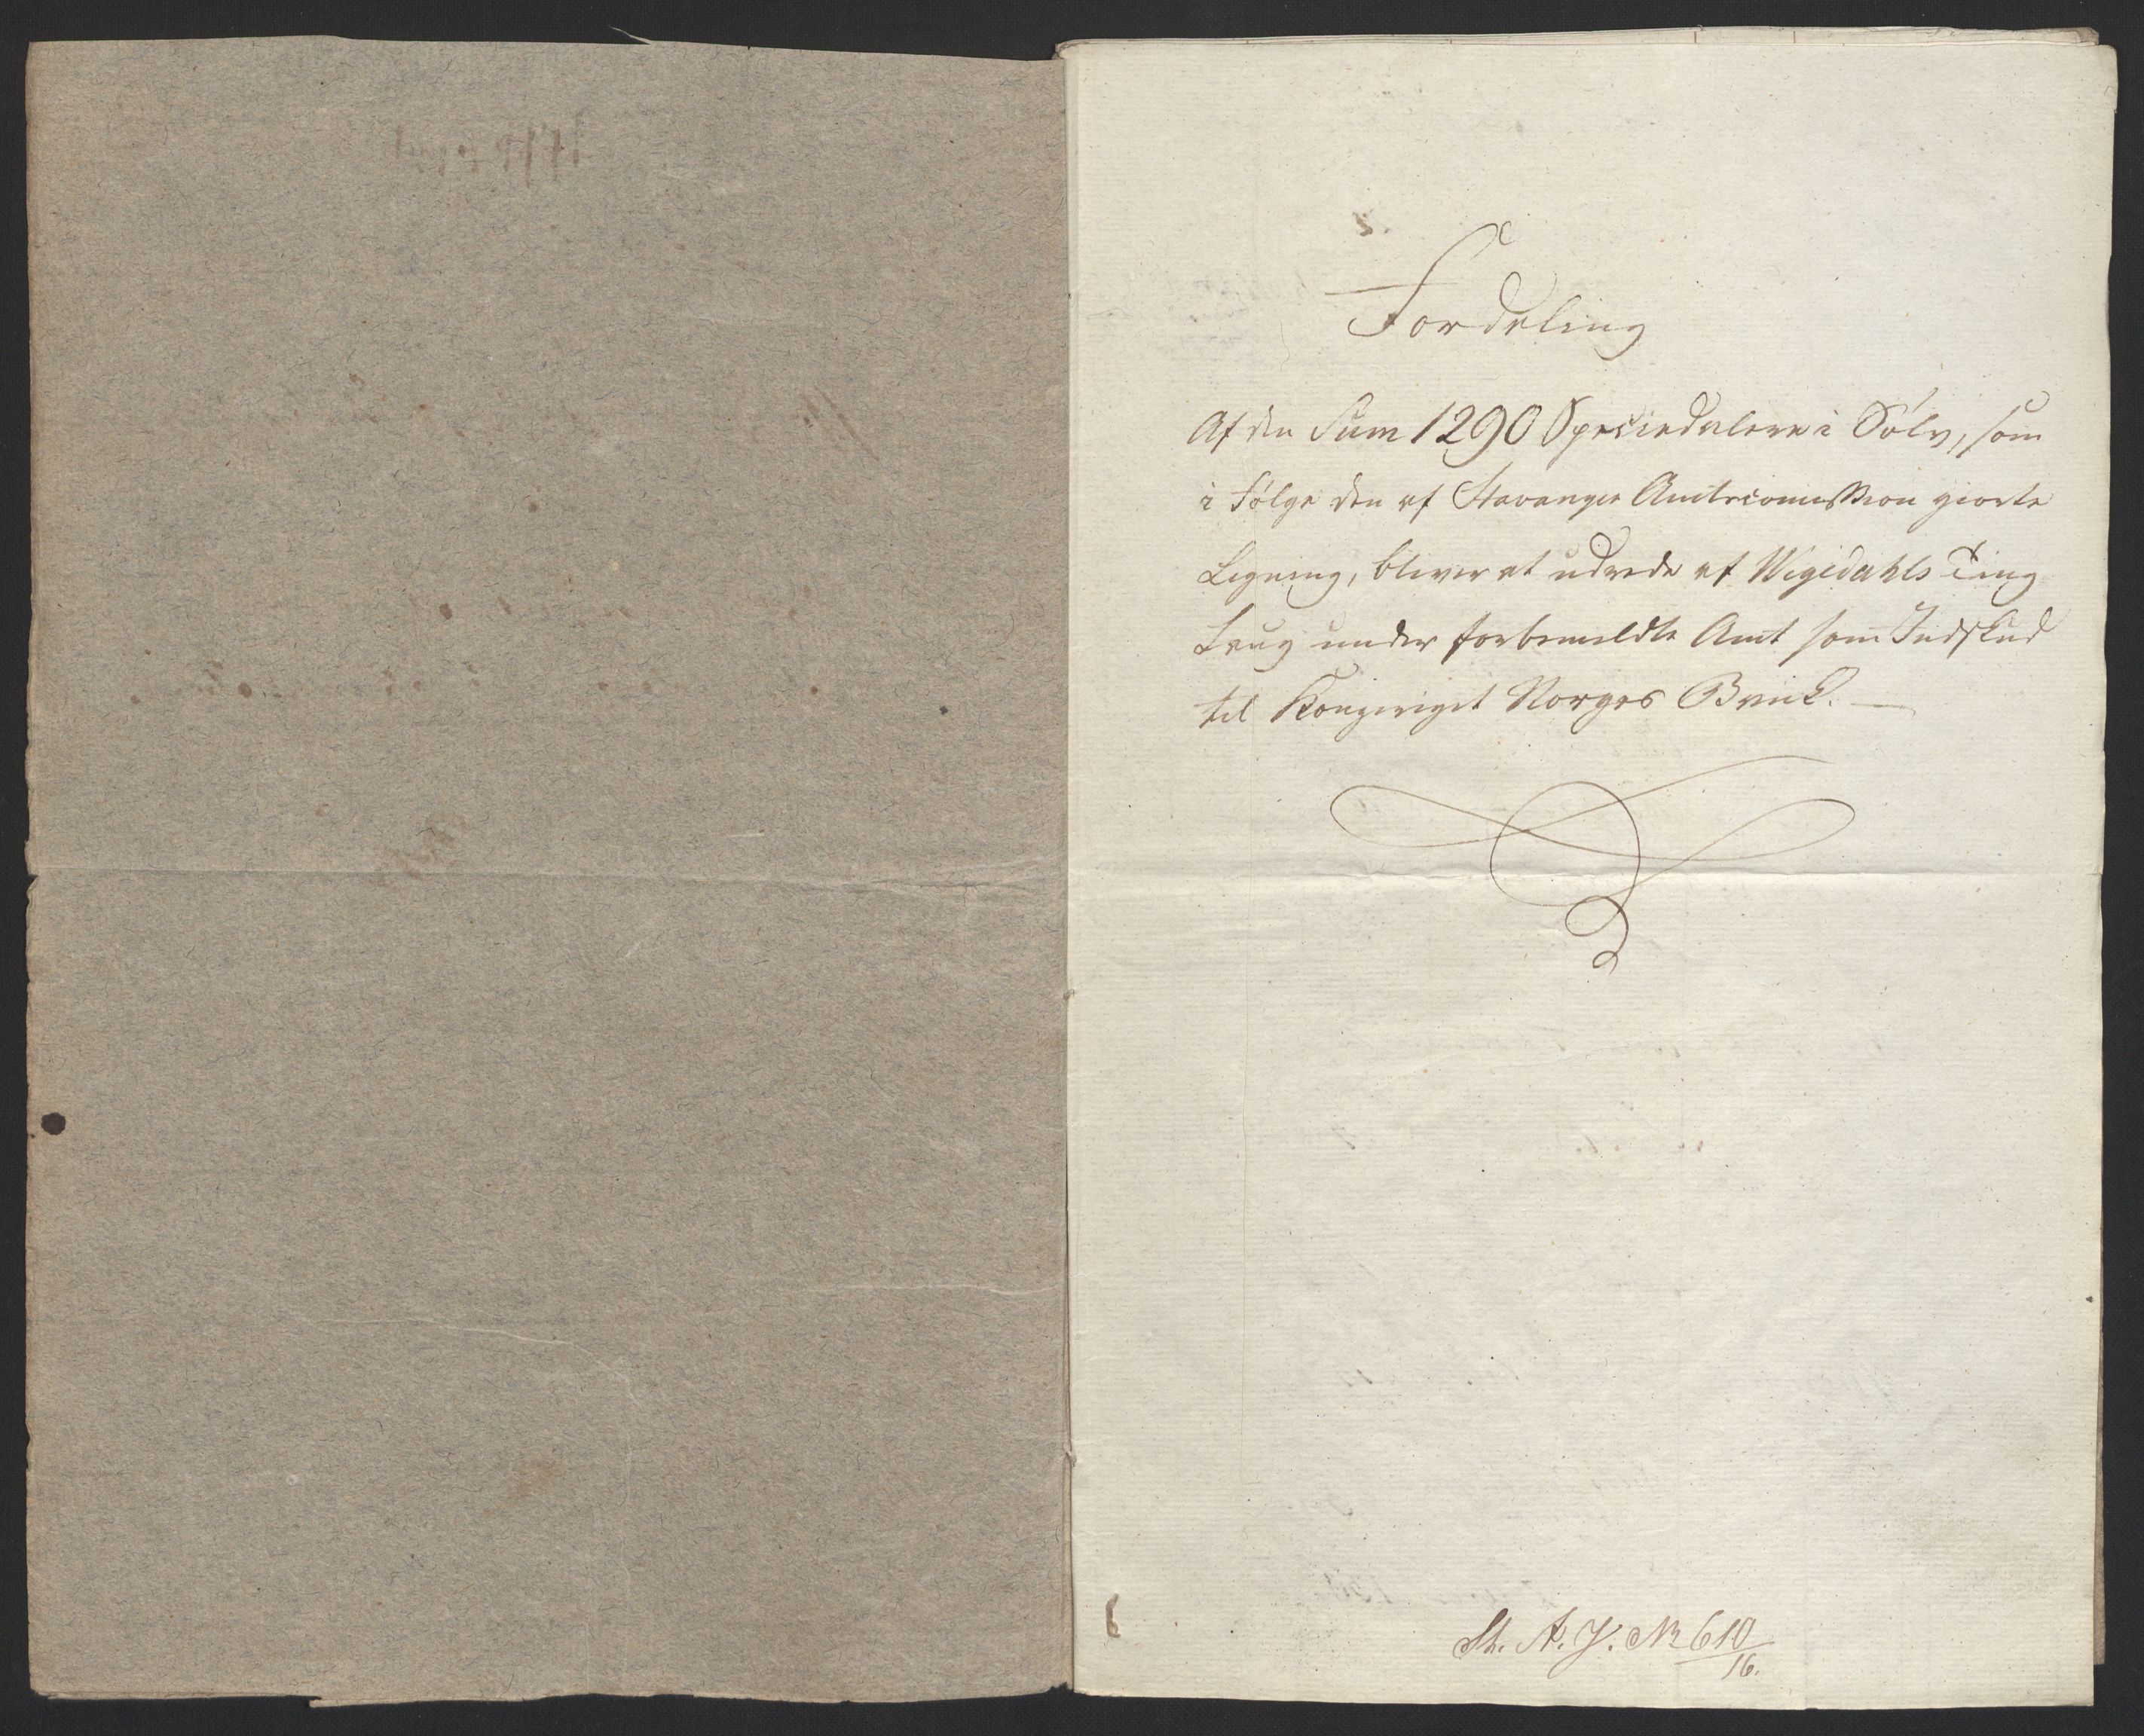 Fordeling
Af den Sum 1290 Speciedalere i Sølv, som
i Følge den af Stavanger Amtscommission giorte
Ligning, bliver at udrede af Wigedahls Ting
Laug under forbemeldte Amt som Indskud
til Kongeriget Norges Bank.
St. A. J. No 610/16.